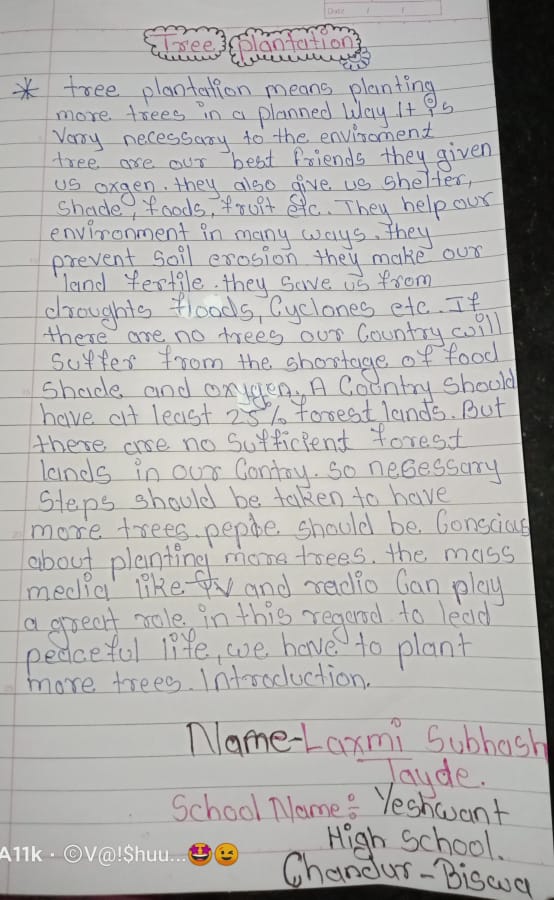 Date / /
Tree plantation
* tree plantation means planting
more trees in a planned way It is
Vary necessary to the enviroment
tree are our best friends they given
us oxgen. they also give us shelter,
shade, foods, fruit etc. They help our
environment in many ways. they
prevent soil erosion they make our
land fertile. they save us from
droughts floods, Cyclones etc. If
there are no trees our Country will
suffer from the shortage of food
shade and oxygen. A Country should
have at least 25% forest lands. But
there are no sufficient forest
lands in our Contry. so necessary
steps should be taken to have
more trees. pepble should be Conscius
about planting more trees. the mass
media like TV and radio Can play
a great role in this regard. to lead
peaceful life, we have to plant
more trees. Introduction.
Name-Laxmi Subhash
Tayde.
School Name: Yeshwant
High School.
Chandur-Biswa
A11k · ©V@!$huu...🤩😉